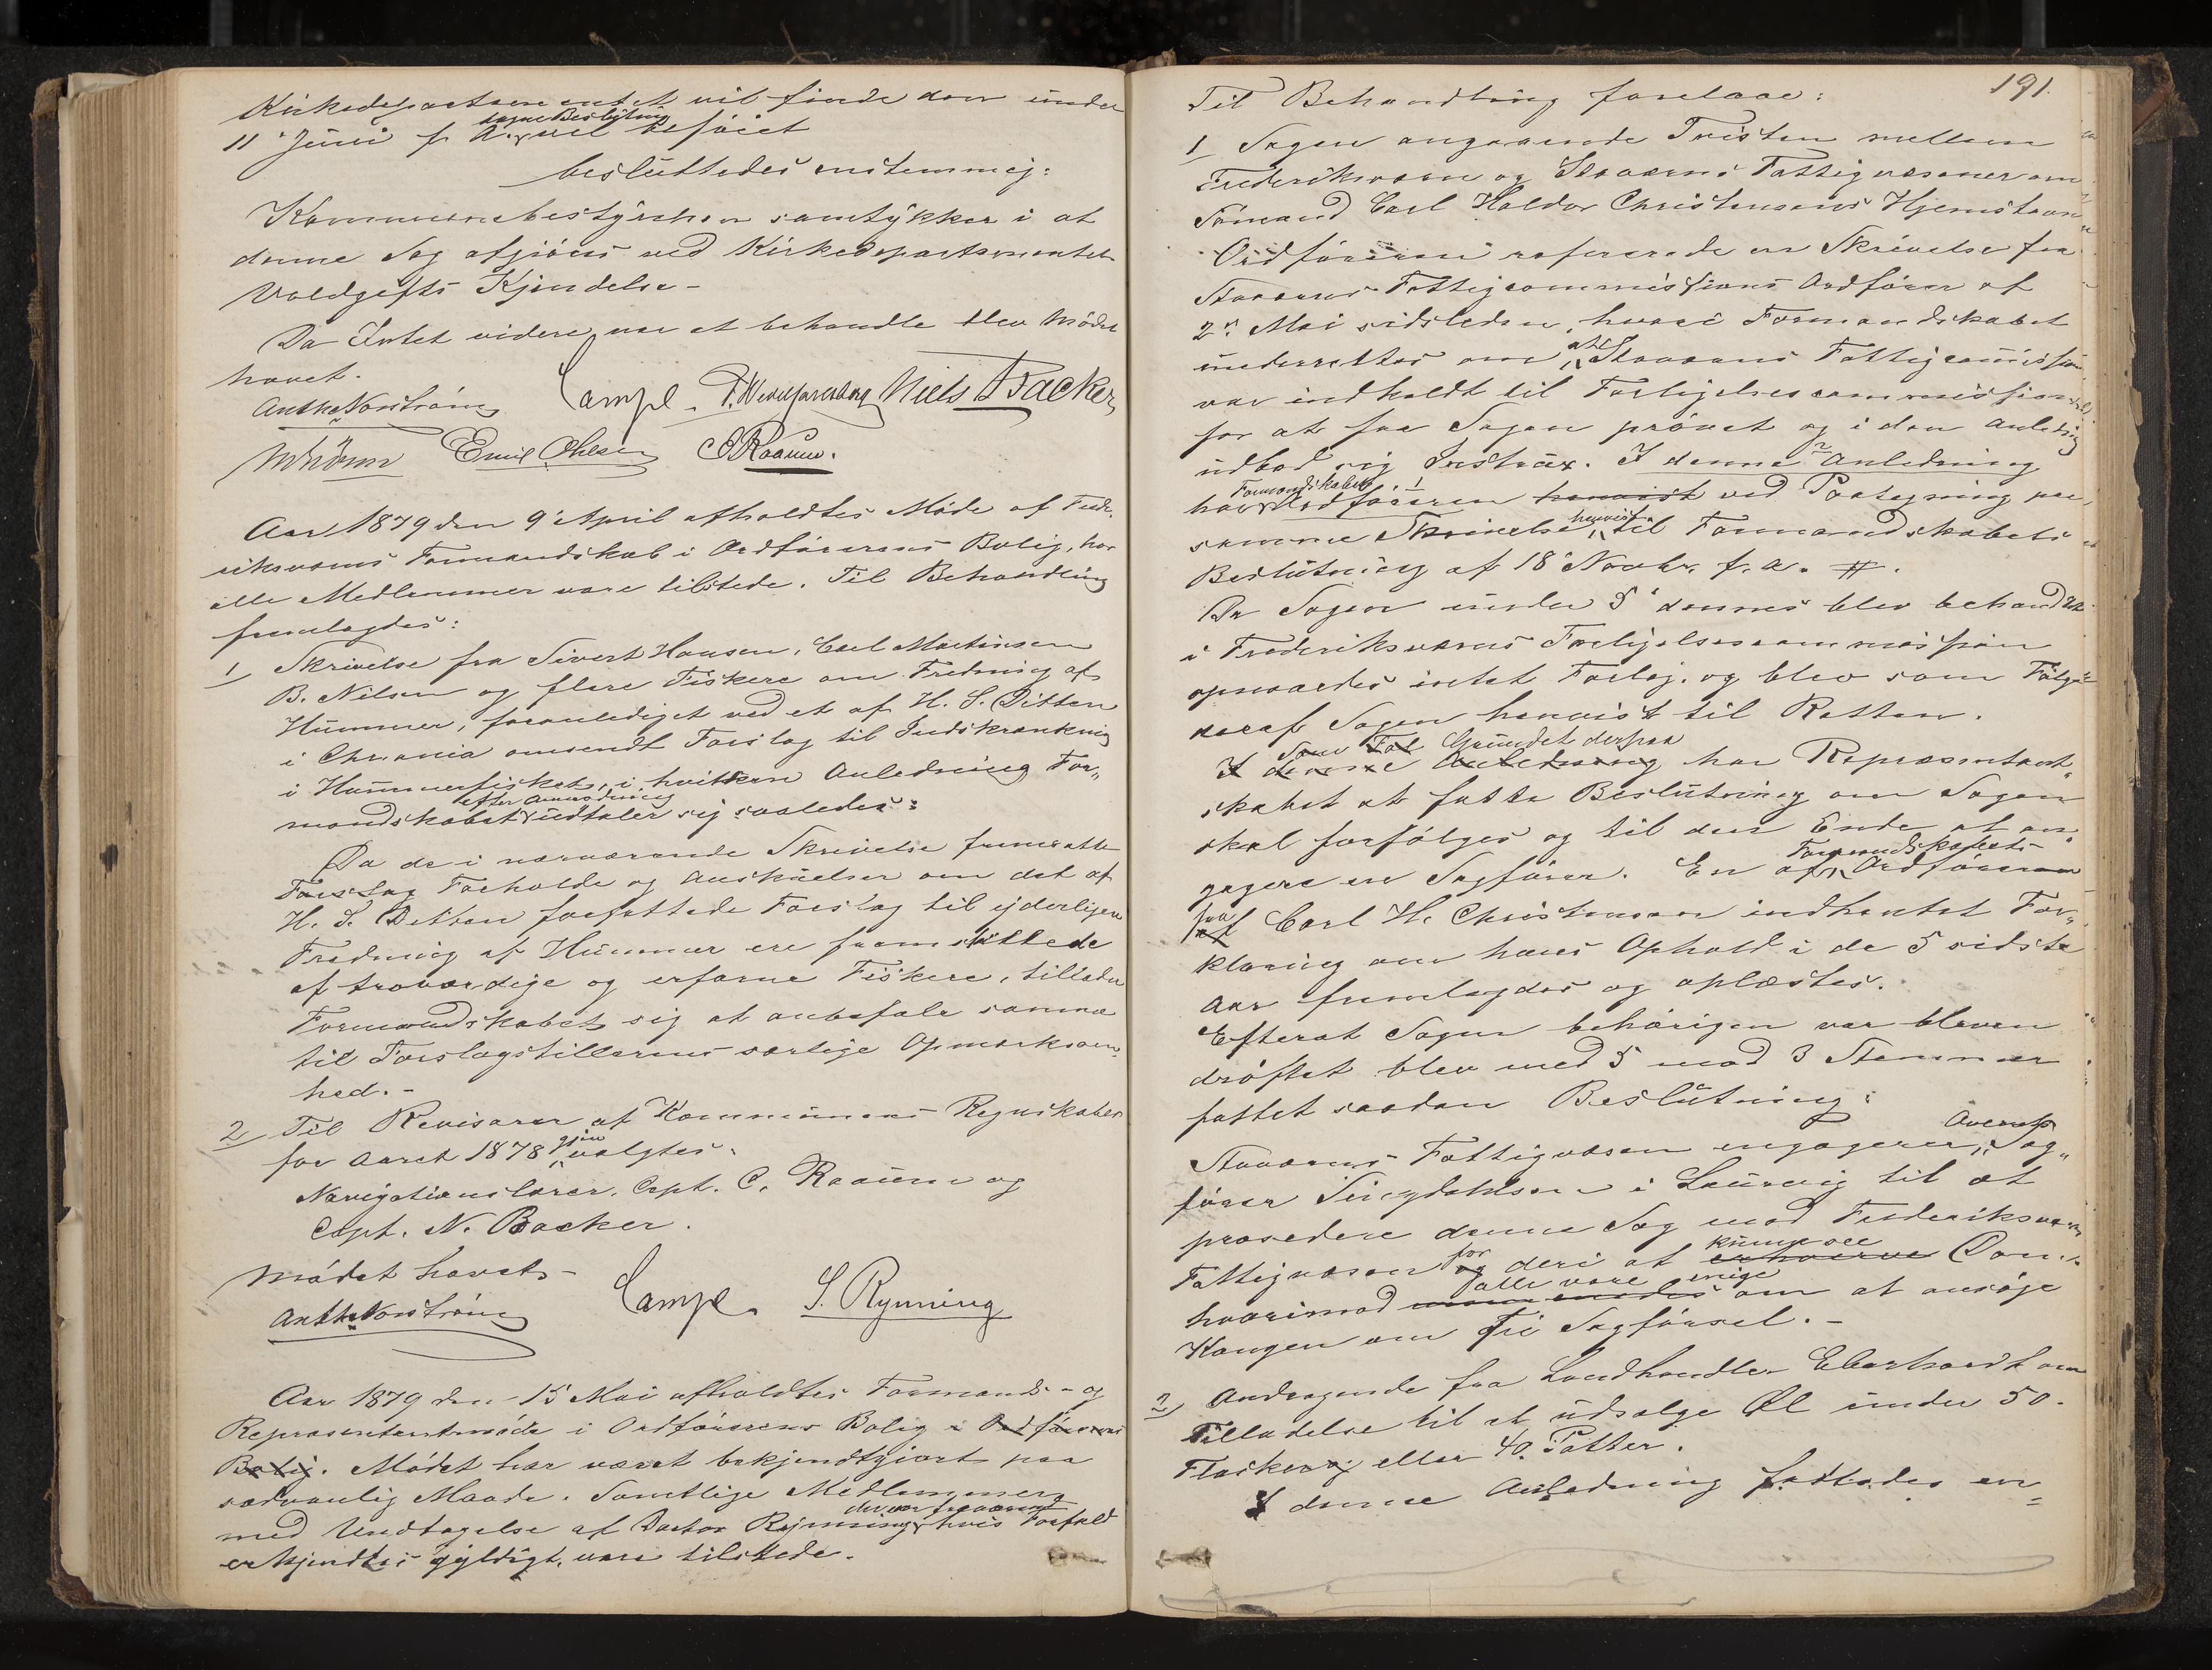 Kirkedepartementet vil finde den under
11 Juni f. A. tagne Beslutning vel beføiet
besluttedes enstemmig:
Kommunebestyrelsen samtykker i at
denne Sag afgjøres ved Kirkedepartementets
Voldgifts Kjendelse -
Da Intet videre var at behandle blev Mødet
hævet.
Anth. Norström Campe. Niels Backer
Emil Ohlsen C Raaum.
Aar 1879 den 9 April afholdtes Møde af Frede-
riksværns Formandskab i Ordførerens Bolig, hvor
alle Medlemmer vare tilstede. Til Behandling
fremlagdes:
1 Skrivelse fra Sivert Hansen, Carl Martinsen
B. Nilsen og flere Fiskere om Fredning af
Hummer, foranlediget ved et af H. S. Ditten
i Chrania omsendt Forslag til Indskrænkning
i Hummerfisket, i hvilken Anledning For„
mandskabet efter Anmodning udtaler sig saaledes:
Da de i nærværende Skrivelse fremsatte
Forslag Forholde og Anskuelser om det af
H. S. Ditten forfattede Forslag til yderligere
Fredning af Hummer ere fremsatte
af troværdige og erfarne Fiskere, tillader
Formandskabet sig at anbefale samme
til Forslagstillerens særlige Opmærksom„
hed. -
2 Til Revisorer af Kommunens Regnskaber
for Aaret 1878 gjen valgtes:
Navigationslærer, Capt. C. Raaum og
Capt. N. Backer.
Mødet hævet -
Anth. Norström Campe. S. Rynning
Aar 1879 den 15 Mai afholdtes Formands- og
Repræsentantmøde i Ordførerens Bolig i Ordførerens
Bolig. Mødet har været bekjendtgjort paa
sædvanlig Maade. Samtlige Medlemmer
med Undtagelse af Doctor Rynning der var fraværende hvis Forfald
erkjendtes gyldigt, vare tilstede.
191.
Til Behandling forelaae:
1 Sagen angaaende Tvisten mellem
Frederiksværn og Staværns Fattigvæsener om
Sømand Carl Haldor Christensens Hjemstavn
Ordføreren refererede en Skrivelse fra
Staværns Fattigcommissions Ordfører af
2n Mai sidstleden, hvori Formandskabet
underrettes om at Staværns Fattigcommission
var indkaldt til Forligelsescommissionen
for at faa Sagen prøvet og i den Anledning
udbad sig Instrux. I denne Anledning
har Formandskabets Ordføreren henvist ved Paategning paa
samme Skrivelse henvist til Formandskabets
Beslutning af 18 Novbr. f. a. #.
Da Sagen under 5 dennes blev behandlet
i Frederiksværns Forligelsescommission
opnaaedes intet Forlig, og blev som Følge
deraf Sagen henvist til Retten.
I denne Anledning Som Føl Grundet derpaa har Repræsentant„
skabet at fatte Beslutning om Sagen
skal forfølges og til den Ende at en„
gagere en Sagfører. En af Formandskabets Ordføreren
af fra Carl H. Christensen indhentet For„
klaring om hans Ophold i de 5 sidste
Aar fremlagdes og oplæstes.
Efterat Sagen behørigen var bleven
drøftet blev med 5 mod 3 Stemmer
fattet saadan Beslutning:
Staværns Fattigvæsen engagerer Overrets Sag„
fører i Laurvig til at
procedere denne Sag mod Frederiksværns
Fattigvæsen og for deri at erhverve kunne see Dom.
hvorimod alle vare enige om at ansøge
Kongen om fri Sagførsel. -
2 Andragende fra Landhandler Eberhardt om
Tilladelse til at udsælge Øl under 50.
Flasker eller 40. Potter.
I denne Anledning fattedes en=